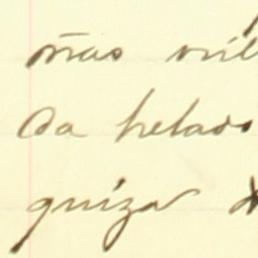 mas mil
da helado
quiza